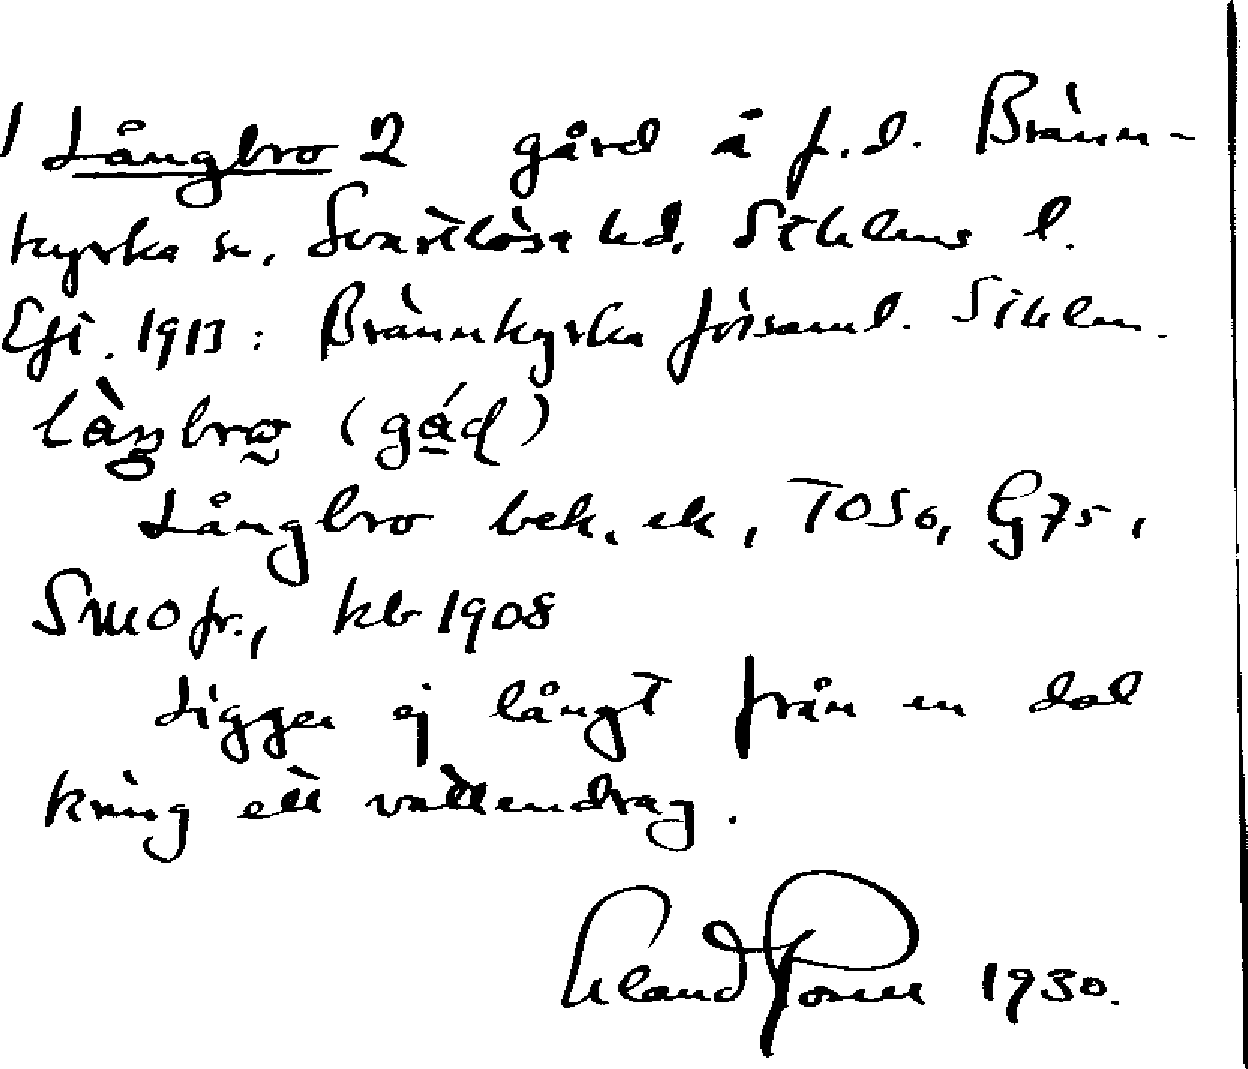 Långbro 2 gård i f.d. Bränn-
kyrka sn, Svartlösa hd, Sthlms l.
Eft. 1913: Brännkyrka församl. Sthlm.
làŋbro (gád)
Långbro bek. ek, TOSo, G75,
SMO fr., kb 1908
Ligger ej långt från en dal
kring ett vattendrag.
1930.